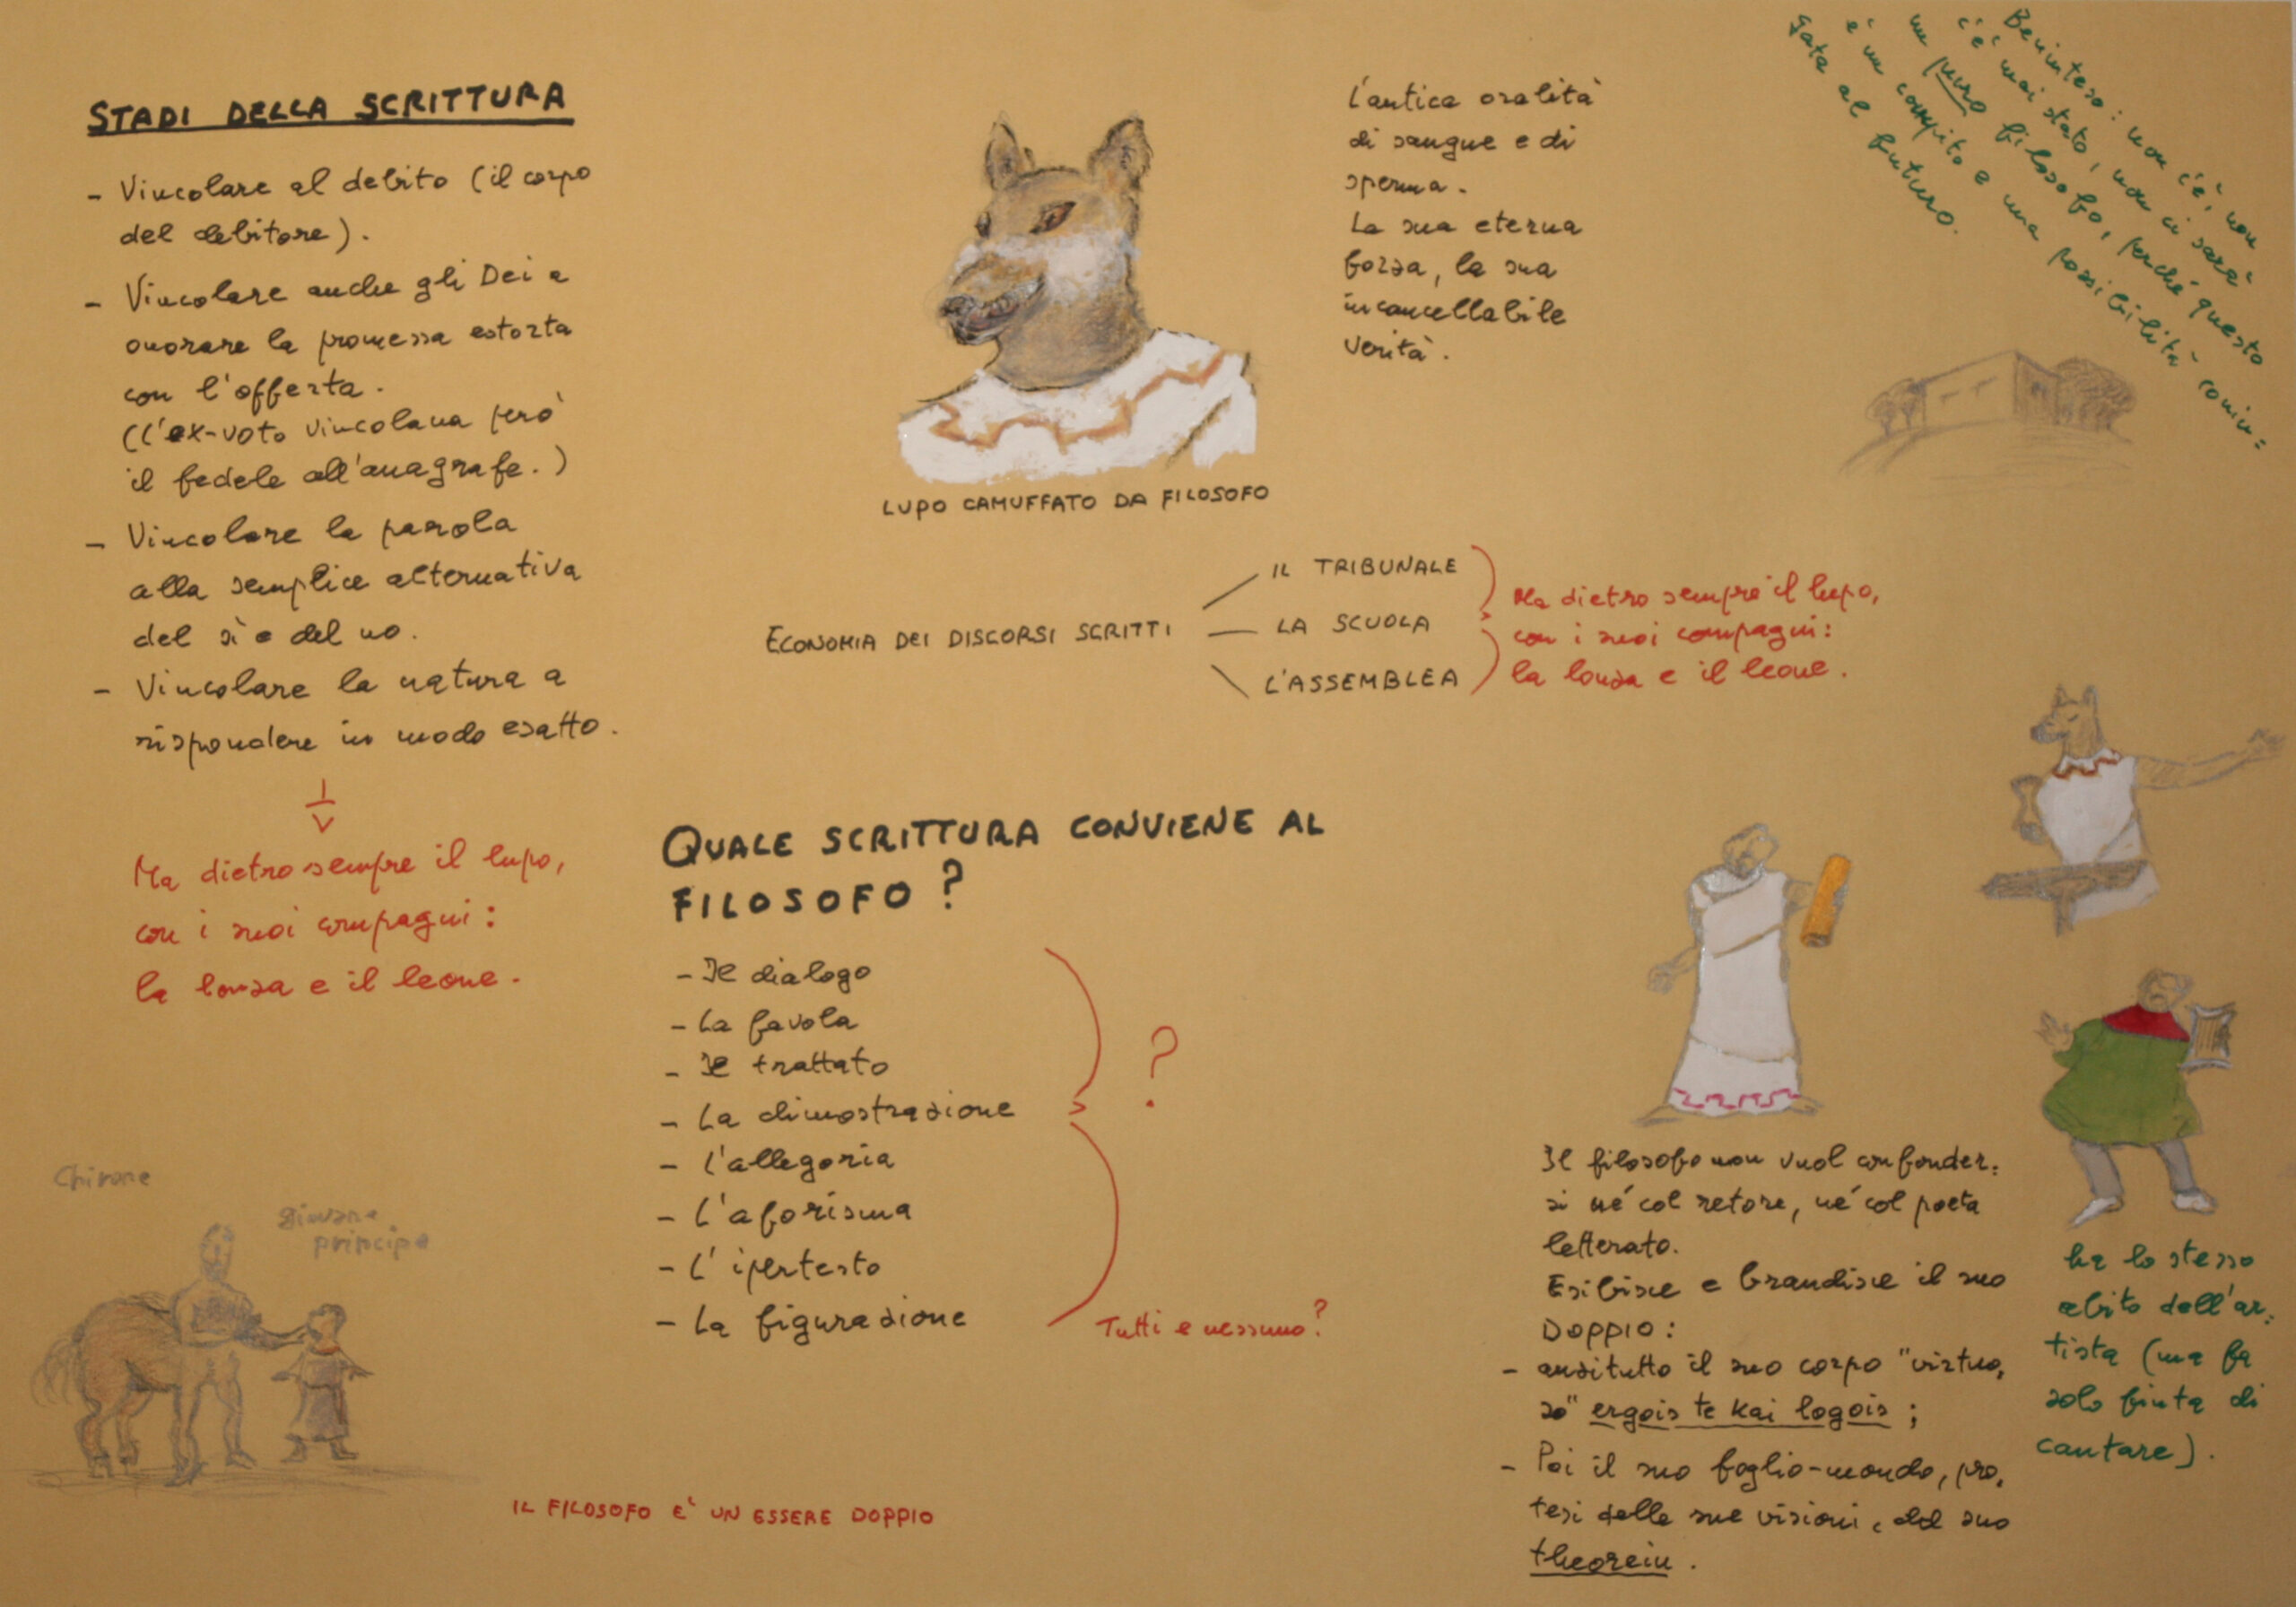 STADI DELLA SCRITTURA
- Vincolare al debito (il corpo
del debitore).
- Vincolare anche gli Dei a
onorare la promessa estorta
con l'offerta.
(l'ex-voto vincolava però
il fedele all'anagrafe.)
- Vincolare la parola
alla semplice alternativa
del sì e del no.
- Vincolare la natura a
rispondere in modo esatto.
Ma dietro sempre il lupo,
con i suoi compagni:
la lonza e il leone.
Chirone
giovane
principe
IL FILOSOFO E' UN ESSERE DOPPIO
LUPO CAMUFFATO DA FILOSOFO
L'antica oralità
di sangue e di
sperma.
La sua eterna
forza, la sua
incancellabile
verità.
Beninteso: non c'è, non
c'è mai stato, non ci sarà
un puro filosofo, perché questo
è un compito e una possibilità coniu=
gata al futuro.
ECONOMIA DEI DISCORSI SCRITTI
IL TRIBUNALE
LA SCUOLA
L'ASSEMBLEA
Ma dietro sempre il lupo,
con i suoi compagni:
la lonza e il leone.
QUALE SCRITTURA CONVIENE AL
FILOSOFO?
- Il dialogo
- La favola
- Il trattato
- La dimostrazione
- L'allegoria
- L'aforisma
- L'ipertesto
- La figurazione
?
Tutti e nessuno?
Il filosofo non vuol confonder=
si né col retore, né col poeta
letterato.
Esibisce e brandisce il suo
DOPPIO:
- anzitutto il suo corpo "virtuo=
so" ergois te kai logois;
- Poi il suo foglio-mondo, pro=
tesi delle sue visioni, del suo
theorein.
ha lo stesso
abito dell'ar=
tista (ma fa
solo finta di
cantare).